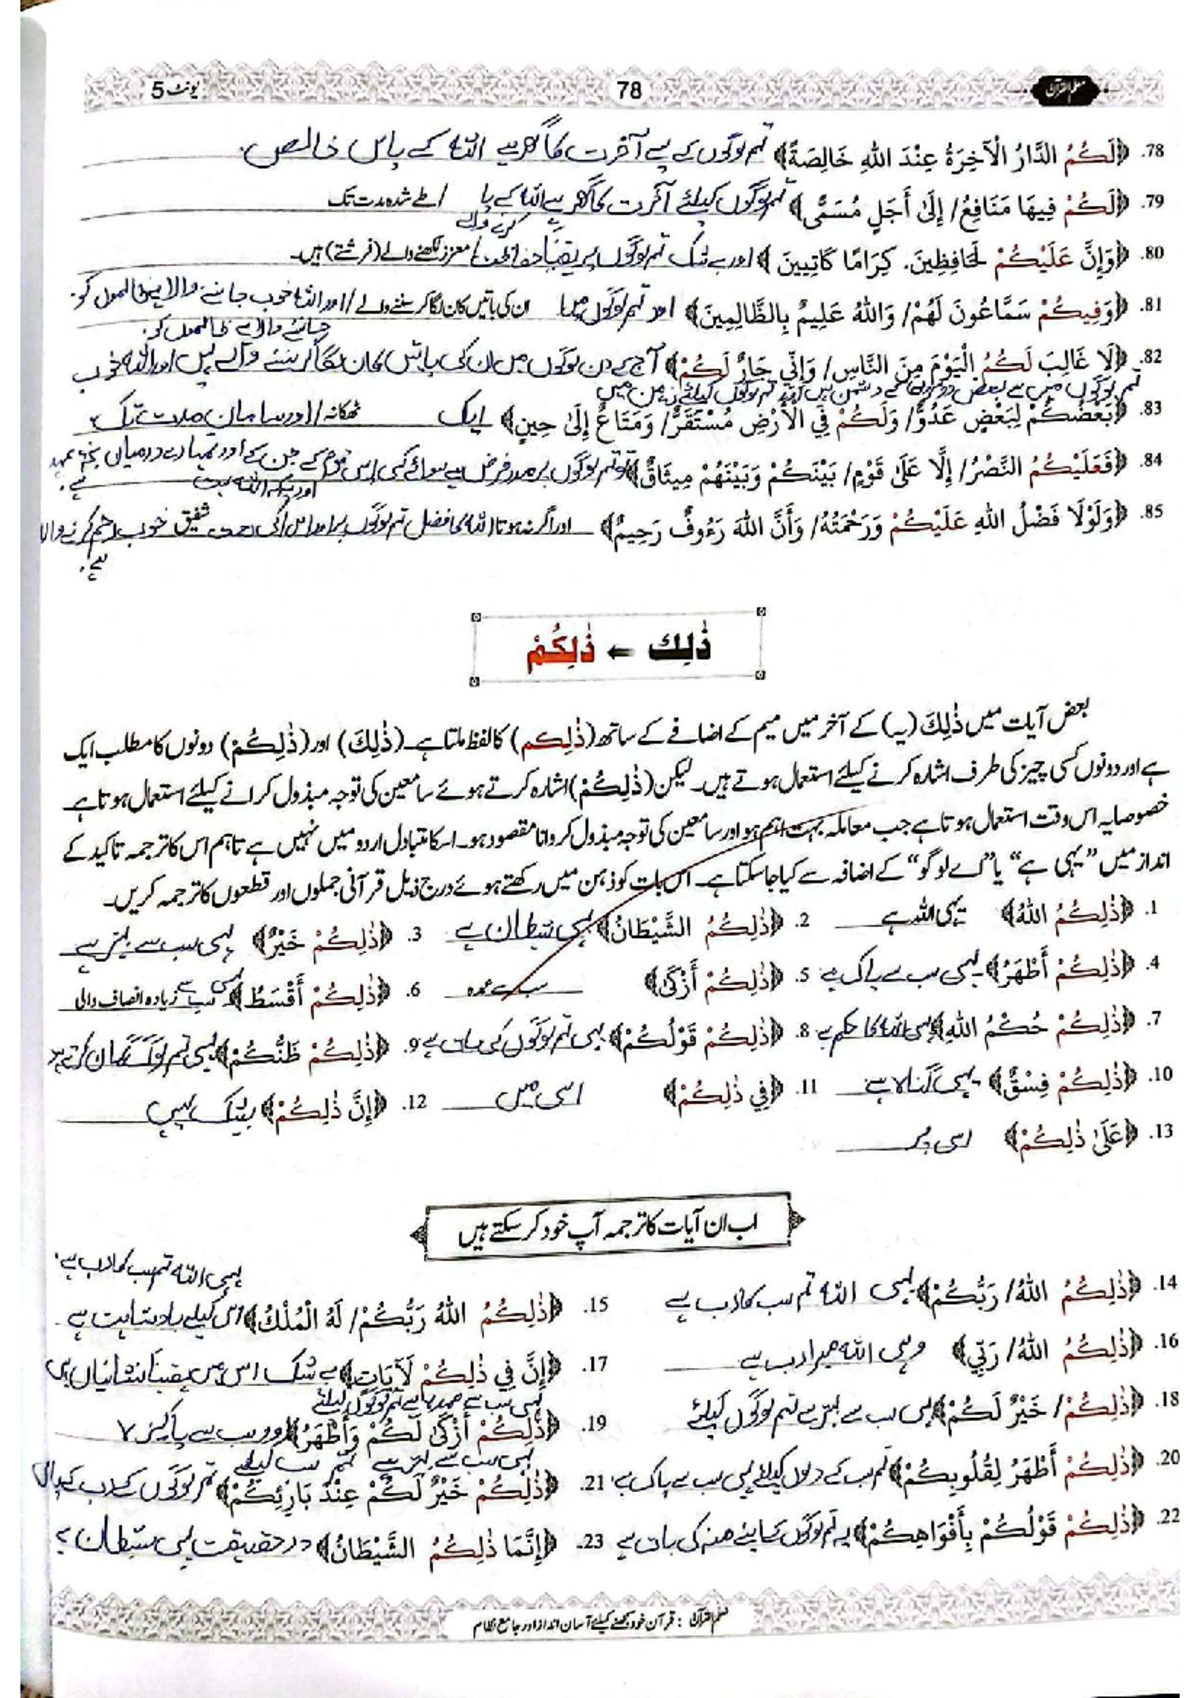 معلم القرآن 78 یونٹ 5
78. ﴿لَكُمُ الدَّارُ الْآخِرَةُ عِنْدَ اللهِ خَالِصَةً﴾ تم لوگوں کے لیے آخرت کا گھر ہے اللہ کے پاس خالص
79. ﴿لَكُمْ فِيهَا مَنَافِعُ/ إِلَىٰ أَجَلٍ مُسَمًّى﴾ تم لوگوں کیلئے آخرت کا گھر ہے اللہ کے پا / طے شدہ مدت تک
کرنے والے
80. ﴿وَإِنَّ عَلَيْكُمْ لَحَافِظِينَ. كِرَامًا كَاتِبِينَ﴾ اور بے شک تم لوگوں پر یقیناً / معزز لکھنے والے (فرشتے) ہیں۔
81. ﴿وَفِيكُمْ سَمَّاعُونَ لَهُمْ/ وَاللهُ عَلِيمٌ بِالظَّالِمِينَ﴾ اور تم لوگوں میں ان کی باتیں کان لگا کر سننے والے / اور اللہ خوب جاننے والا ہے ظالموں کو
جاننے والا ہے ظالموں کو
82. ﴿لَا غَالِبَ لَكُمُ الْيَوْمَ مِنَ النَّاسِ/ وَإِنِّي جَارٌ لَكُمْ﴾ آج کے دن لوگوں میں ان کی باتیں کان لگا کر سننے والے ہیں اور اللہ خوب
تم لوگوں میں سے بعض دوسروں کے دشمن ہیں اور تم لوگوں کیلئے زمین میں
83. ﴿بَعْضُكُمْ لِبَعْضٍ عَدُوٌّ/ وَلَكُمْ فِي الْأَرْضِ مُسْتَقَرٌّ/ وَمَتَاعٌ إِلَىٰ حِينٍ﴾ ایک ٹھکانہ / اور سامان مدت تک
84. ﴿فَعَلَيْكُمُ النَّصْرُ/ إِلَّا عَلَىٰ قَوْمٍ/ بَيْنَكُمْ وَبَيْنَهُمْ مِيثَاقٌ﴾ تو تم لوگوں پر مدد فرض ہے سوائے کسی اس قوم کے جن کے اور تمہارے درمیان پختہ عہد
ہے۔ اور یہ کہ اللہ بہت
85. ﴿وَلَوْلَا فَضْلُ اللهِ عَلَيْكُمْ وَرَحْمَتُهُ/ وَأَنَّ اللهَ رَءُوفٌ رَحِيمٌ﴾ اور اگر نہ ہوتا اللہ کا فضل تم لوگوں پر اور اس کی رحمت شفیق خوب رحم کرنے والا
ہے۔
ذٰلِكَ ← ذٰلِكُمْ
بعض آیات میں ذٰلِكَ (یہ) کے آخر میں میم کے اضافے کے ساتھ (ذٰلِكم) کا لفظ ملتا ہے۔ (ذٰلِكَ) اور (ذٰلِكُمْ) دونوں کا مطلب ایک
ہے اور دونوں کسی چیز کی طرف اشارہ کرنے کیلئے استعمال ہوتے ہیں۔ لیکن (ذٰلِكُمْ) اشارہ کرتے ہوئے سامعین کی توجہ مبذول کرانے کیلئے استعمال ہوتا ہے
خصوصا یہ اس وقت استعمال ہوتا ہے جب معاملہ بہت اہم ہو اور سامعین کی توجہ مبذول کروانا مقصود ہو۔ اسکا متبادل اردو میں نہیں ہے تاہم اس کا ترجمہ تاکید کے
انداز میں ”یہی ہے“ یا ”اے لوگو“ کے اضافہ سے کیا جاسکتا ہے۔ اس بات کو ذہن میں رکھتے ہوئے درج ذیل قرآنی جملوں اور قطعوں کا ترجمہ کریں۔
1. ﴿ذٰلِكُمُ اللهُ﴾ یہی اللہ ہے 2. ﴿ذٰلِكُمُ الشَّيْطَانُ﴾ یہی شیطان ہے 3. ﴿ذٰلِكُمْ خَيْرٌ﴾ یہی سب سے بہتر ہے
4. ﴿ذٰلِكُمْ أَطْهَرُ﴾ یہی سب سے پاک ہے 5. ﴿ذٰلِكُمْ أَزْكَىٰ﴾ سب سے عمدہ 6. ﴿ذٰلِكُمْ أَقْسَطُ﴾ یہی سب سے زیادہ انصاف والی
7. ﴿ذٰلِكُمْ حُكْمُ اللهِ﴾ یہی اللہ کا حکم ہے 8. ﴿ذٰلِكُمْ قَوْلُكُمْ﴾ یہی تم لوگوں کی بات ہے 9. ﴿ذٰلِكُمْ ظَنُّكُمْ﴾ یہی تم لوگ گمان کرتے ہو
10. ﴿ذٰلِكُمْ فِسْقٌ﴾ یہی گناہ ہے 11. ﴿فِي ذٰلِكُمْ﴾ اسی میں 12. ﴿إِنَّ ذٰلِكُمْ﴾ بیشک یہی
13. ﴿عَلَىٰ ذٰلِكُمْ﴾ اسی پر
اب ان آیات کا ترجمہ آپ خود کر سکتے ہیں
یہی اللہ تم سب کا رب ہے۔
14. ﴿ذٰلِكُمُ اللهُ/ رَبُّكُمْ﴾ یہی اللہ تم سب کا رب ہے 15. ﴿ذٰلِكُمُ اللهُ رَبُّكُمْ/ لَهُ الْمُلْكُ﴾ اس کیلئے بادشاہت ہے
16. ﴿ذٰلِكُمُ اللهُ/ رَبِّي﴾ وہی اللہ میرا رب ہے 17. ﴿إِنَّ فِي ذٰلِكُمْ لَآيَاتٍ﴾ بے شک اس میں یقیناً نشانیاں ہیں
18. ﴿ذٰلِكُمْ/ خَيْرٌ لَكُمْ﴾ یہی سب سے بہتر ہے تم لوگوں کیلئے
یہی سب سے عمدہ ہے تم لوگوں کیلئے
19. ﴿ذٰلِكُمْ أَزْكَىٰ لَكُمْ وَأَطْهَرُ﴾ اور سب سے پاکیزہ
یہی سب سے بہتر ہے تم سب کیلئے
20. ﴿ذٰلِكُمْ أَطْهَرُ لِقُلُوبِكُمْ﴾ تم سب کے دلوں کیلئے یہی سب سے پاک ہے 21. ﴿ذٰلِكُمْ خَيْرٌ لَكُمْ عِنْدَ بَارِئِكُمْ﴾ تم لوگوں کے رب کے ہاں
22. ﴿ذٰلِكُمْ قَوْلُكُمْ بِأَفْوَاهِكُمْ﴾ یہ تم لوگوں کا اپنے منہ کی بات ہے 23. ﴿إِنَّمَا ذٰلِكُمُ الشَّيْطَانُ﴾ در حقیقت یہی شیطان ہے
معلم القرآن : قرآن خود سمجھنے کیلئے آسان انداز اور جامع نظام